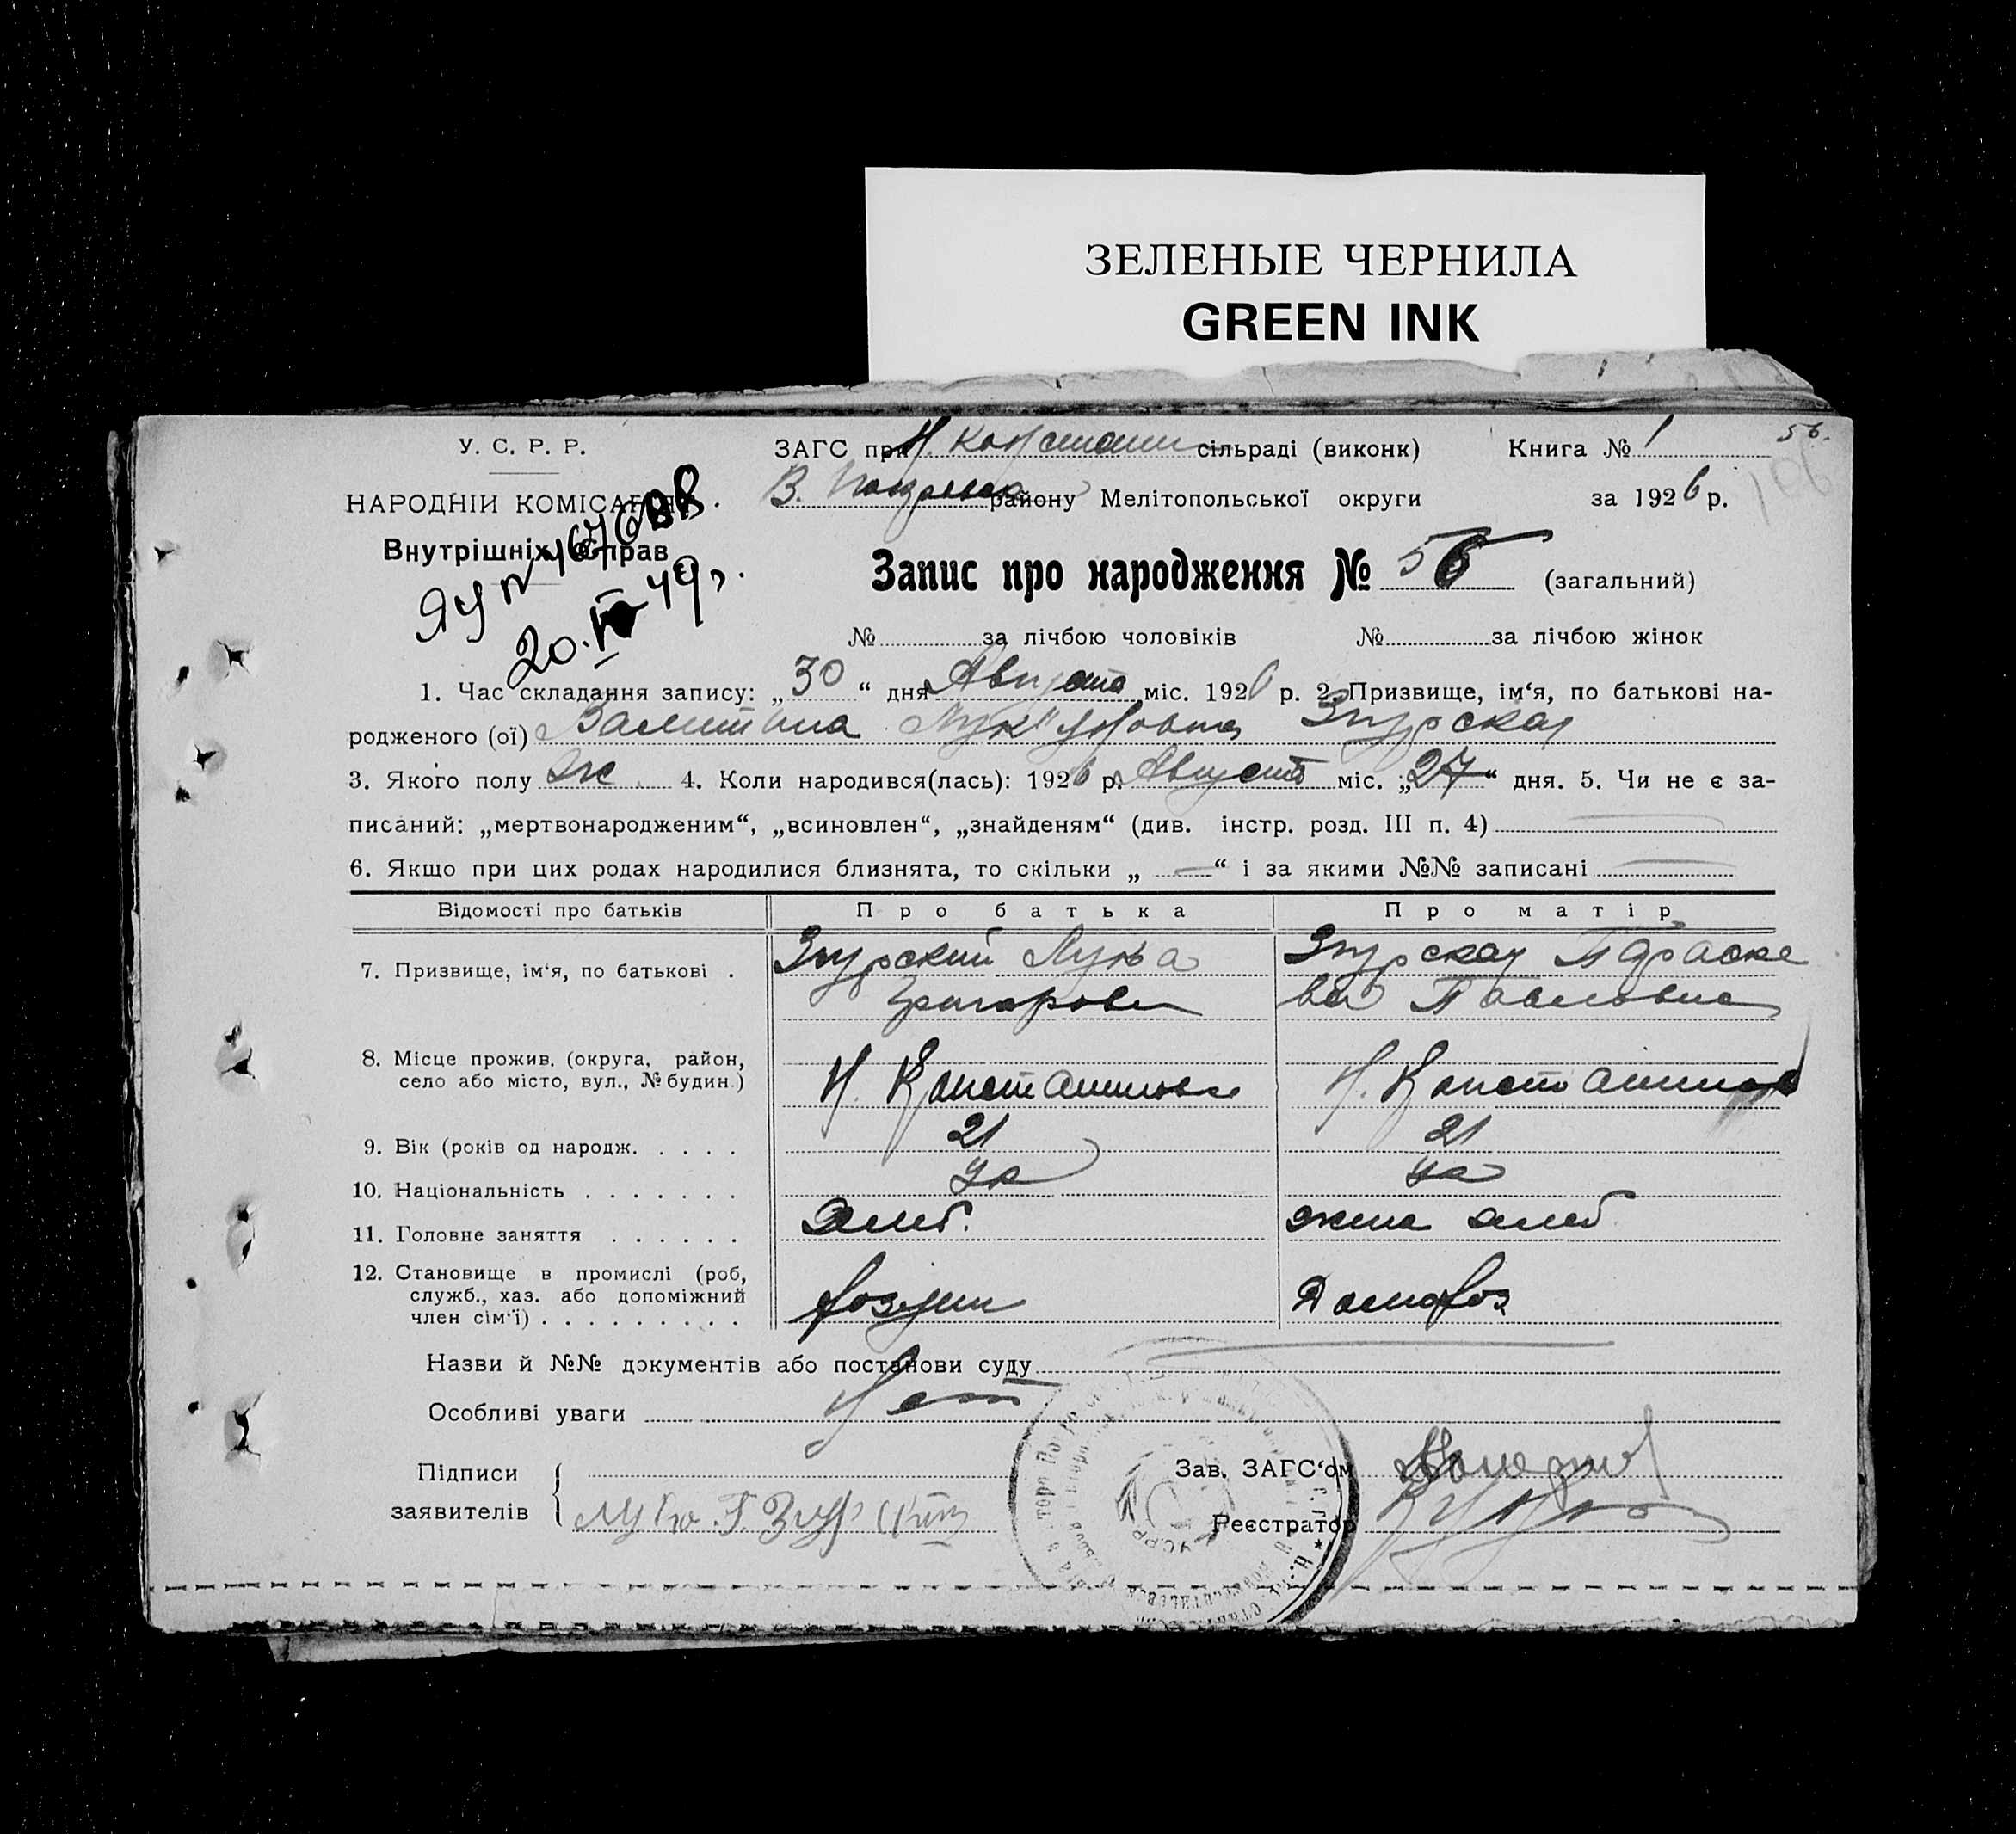 ЗЕЛЕНЫЕ ЧЕРНИЛА
GREEN INK
У. С. Р. Р. ЗАГС при Н. Констант сільраді (виконк) Книга № 1 56.
НАРОДНІЙ КОМІСАРІЯТ В. району Мелітопольської округи за 1926 р.
Внутрішніх Справ
Запис про народження № 56 (загальний)
20.IV 49 г.
№ за лічбою чоловіків № за лічбою жінок
1. Час складання запису: „30“ дня Августа міс. 1926 р. 2. Призвище, ім‘я, по батькові на-
родженого (ої) Валентина Згурская
3. Якого полу ж 4. Коли народився(лась): 1926 р. Август міс. „27“ дня. 5. Чи не є за-
писаний: „мертвонародженим“, „всиновлен“, „знайденям“ (див. інстр. розд. III п. 4)
6. Якщо при цих родах народилися близнята, то скільки „ — “ і за якими №№ записані
Відомості про батьків Про батька Про матір
7. Призвище, ім‘я, по батькові . Згурский Лука Згурская Параске
Григорович ва Павловна
8. Місце прожив. (округа, район,
село або місто, вул., № будин.) Н. Константиновк Н. Константинов
9. Вік (років од народж. . . . . 21 21
10. Національність . . . . . . . Ук Ук
11. Головне заняття . . . . . . Хлеб. жена хлеб
12. Становище в промислі (роб,
служб., хаз. або допоміжний
член сім‘ї) . . . . . . . . . хозяин Домохоз
Назви й №№ документів або постанови суду
Особливі уваги Нет
Підписи Зав. ЗАГС‘ом
заявителів Лука Г. Згурский Реєстратор
УСРР